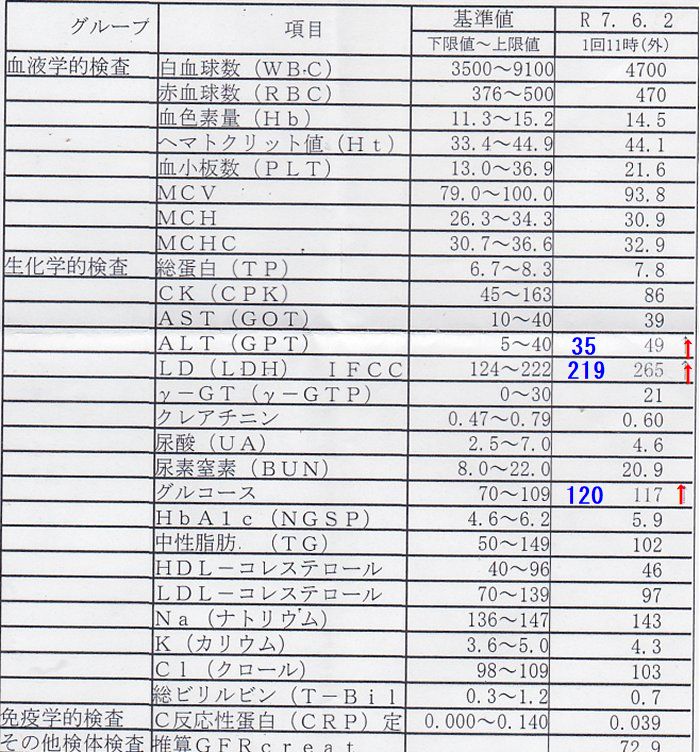 グループ 項目 基準値 R 7. 6. 2
下限値～上限値 1回11時(外)
血液学的検査 白血球数（ＷＢＣ） 3500～9100 4700
赤血球数（ＲＢＣ） 376～500 470
血色素量（Ｈｂ） 11.3～15.2 14.5
ヘマトクリット値（Ｈｔ） 33.4～44.9 44.1
血小板数（ＰＬＴ） 13.0～36.9 21.6
ＭＣＶ 79.0～100.0 93.8
ＭＣＨ 26.3～34.3 30.9
ＭＣＨＣ 30.7～36.6 32.9
生化学的検査 総蛋白（ＴＰ） 6.7～8.3 7.8
ＣＫ（ＣＰＫ） 45～163 86
ＡＳＴ（ＧＯＴ） 10～40 39
ＡＬＴ（ＧＰＴ） 5～40 35 49 ↑
ＬＤ（ＬＤＨ）　ＩＦＣＣ 124～222 219 265 ↑
γ－ＧＴ（γ－ＧＴＰ） 0～30 21
クレアチニン 0.47～0.79 0.60
尿酸（ＵＡ） 2.5～7.0 4.6
尿素窒素（ＢＵＮ） 8.0～22.0 20.9
グルコース 70～109 120 117 ↑
ＨｂＡ１ｃ（ＮＧＳＰ） 4.6～6.2 5.9
中性脂肪　（ＴＧ） 50～149 102
ＨＤＬ－コレステロール 40～96 46
ＬＤＬ－コレステロール 70～139 97
Ｎａ（ナトリウム） 136～147 143
Ｋ（カリウム） 3.6～5.0 4.3
Ｃｌ（クロール） 98～109 103
総ビリルビン（Ｔ－Ｂｉｌ 0.3～1.2 0.7
免疫学的検査 Ｃ反応性蛋白（ＣＲＰ）定 0.000～0.140 0.039
その他検体検査 推算ＧＦＲｃｒｅａｔ